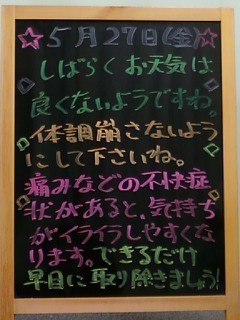 ☆5月27日(金)☆
しばらくお天気は
良くないようですね。
体調崩さないよう
にして下さいね。
痛みなどの不快症
状があると、気持ち
がイライラしやすくな
ります。できるだけ
早目に取り除きましょう!